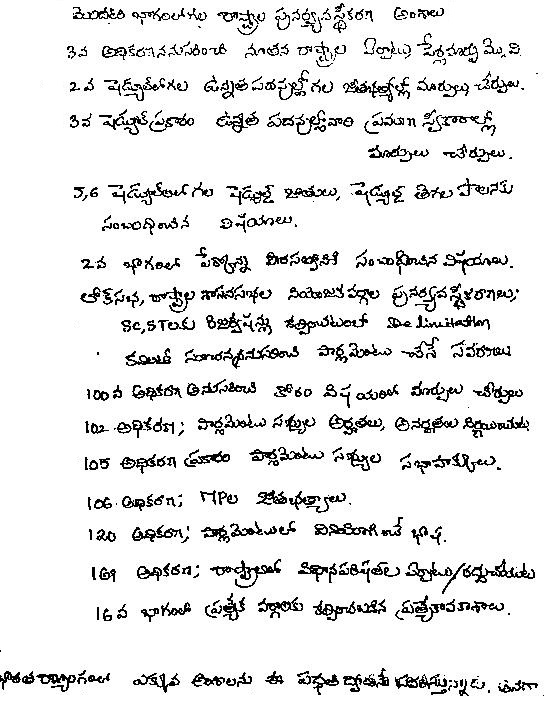 మొదటి భాగంలోగల రాష్ట్రాల పునర్వ్యవస్థీకరణ అంశాలు
3వ అధికరణననుసరించి నూతన రాష్ట్రాల ఏర్పాటు, పేర్లమార్పు మొ॥వి
2వ షెడ్యూల్‌లోగల ఉన్నత పదవుల్లో గల జీతభత్యాల్లో మార్పులు, చేర్పులు.
3వ షెడ్యూల్ ప్రకారం ఉన్నత పదవుల్లోవారి ప్రమాణ స్వీకారాల్లో
మార్పులు చేర్పులు.
5,6 షెడ్యూల్‌లలోగల షెడ్యూల్డ్ జాతులు, షెడ్యూల్డ్ తెగల పాలనకు
సంబంధించిన విషయాలు.
2వ భాగంలో పేర్కొన్న పౌరసత్వానికి సంబంధించిన విషయాలు.
లోక్‌సభ, రాష్ట్రాల శాసనసభల నియోజకవర్గాల పునర్వ్యవస్థీకరణలు;
SC,STలకు రిజర్వేషన్లు కల్పించటంలో Delimitation
కమిటీ సూచనననుసరించి పార్లమెంటు చేసే సవరణలు
100వ అధికరణ అనుసరించి కోరం విషయంలో మార్పులు చేర్పులు
102 అధికరణ; పార్లమెంటు సభ్యుల అర్హతలు, అనర్హతలు నిర్ణయించుట
105 అధికరణ ప్రకారం పార్లమెంటు సభ్యుల సభాహక్కులు.
106 అధికరణ; MPల జీతభత్యాలు.
120 అధికరణ; పార్లమెంటులో వినియోగించే భాష.
169 అధికరణ; రాష్ట్రాలలో విధానపరిషత్‌ల ఏర్పాటు/రద్దుచేయుట
16వ భాగంలో ప్రత్యేక వర్గాలకు కల్పించబడిన ప్రత్యేకావకాశాలు.
భారత రాజ్యాంగంలో ఎక్కువ అంశాలను ఈ పద్ధతి ద్వారానే సవరిస్తున్నారు. అనగా